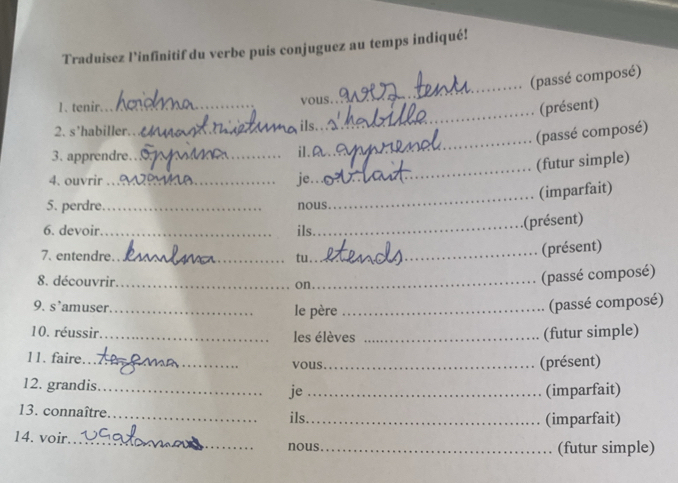 Traduisez l'infinitif du verbe puis conjuguez au temps indiqué!
1. tenir...hoidma............ vous...avez tenu............ (passé composé)
2. s'habiller...ennast riietuma ils...s'habille............ (présent)
3. apprendre...õppima............ il.a apprend............ (passé composé)
4. ouvrir ...avama............ je...ovlait............ (futur simple)
5. perdre............ nous............ (imparfait)
6. devoir............ ils............(présent)
7. entendre...kuulma............ tu...etends............ (présent)
8. découvrir............ on............ (passé composé)
9. s'amuser............ le père ............ (passé composé)
10. réussir............ les élèves ............ (futur simple)
11. faire...tegema............ vous............ (présent)
12. grandis............ je ............ (imparfait)
13. connaître............ ils............ (imparfait)
14. voir...vaatama............ nous............ (futur simple)